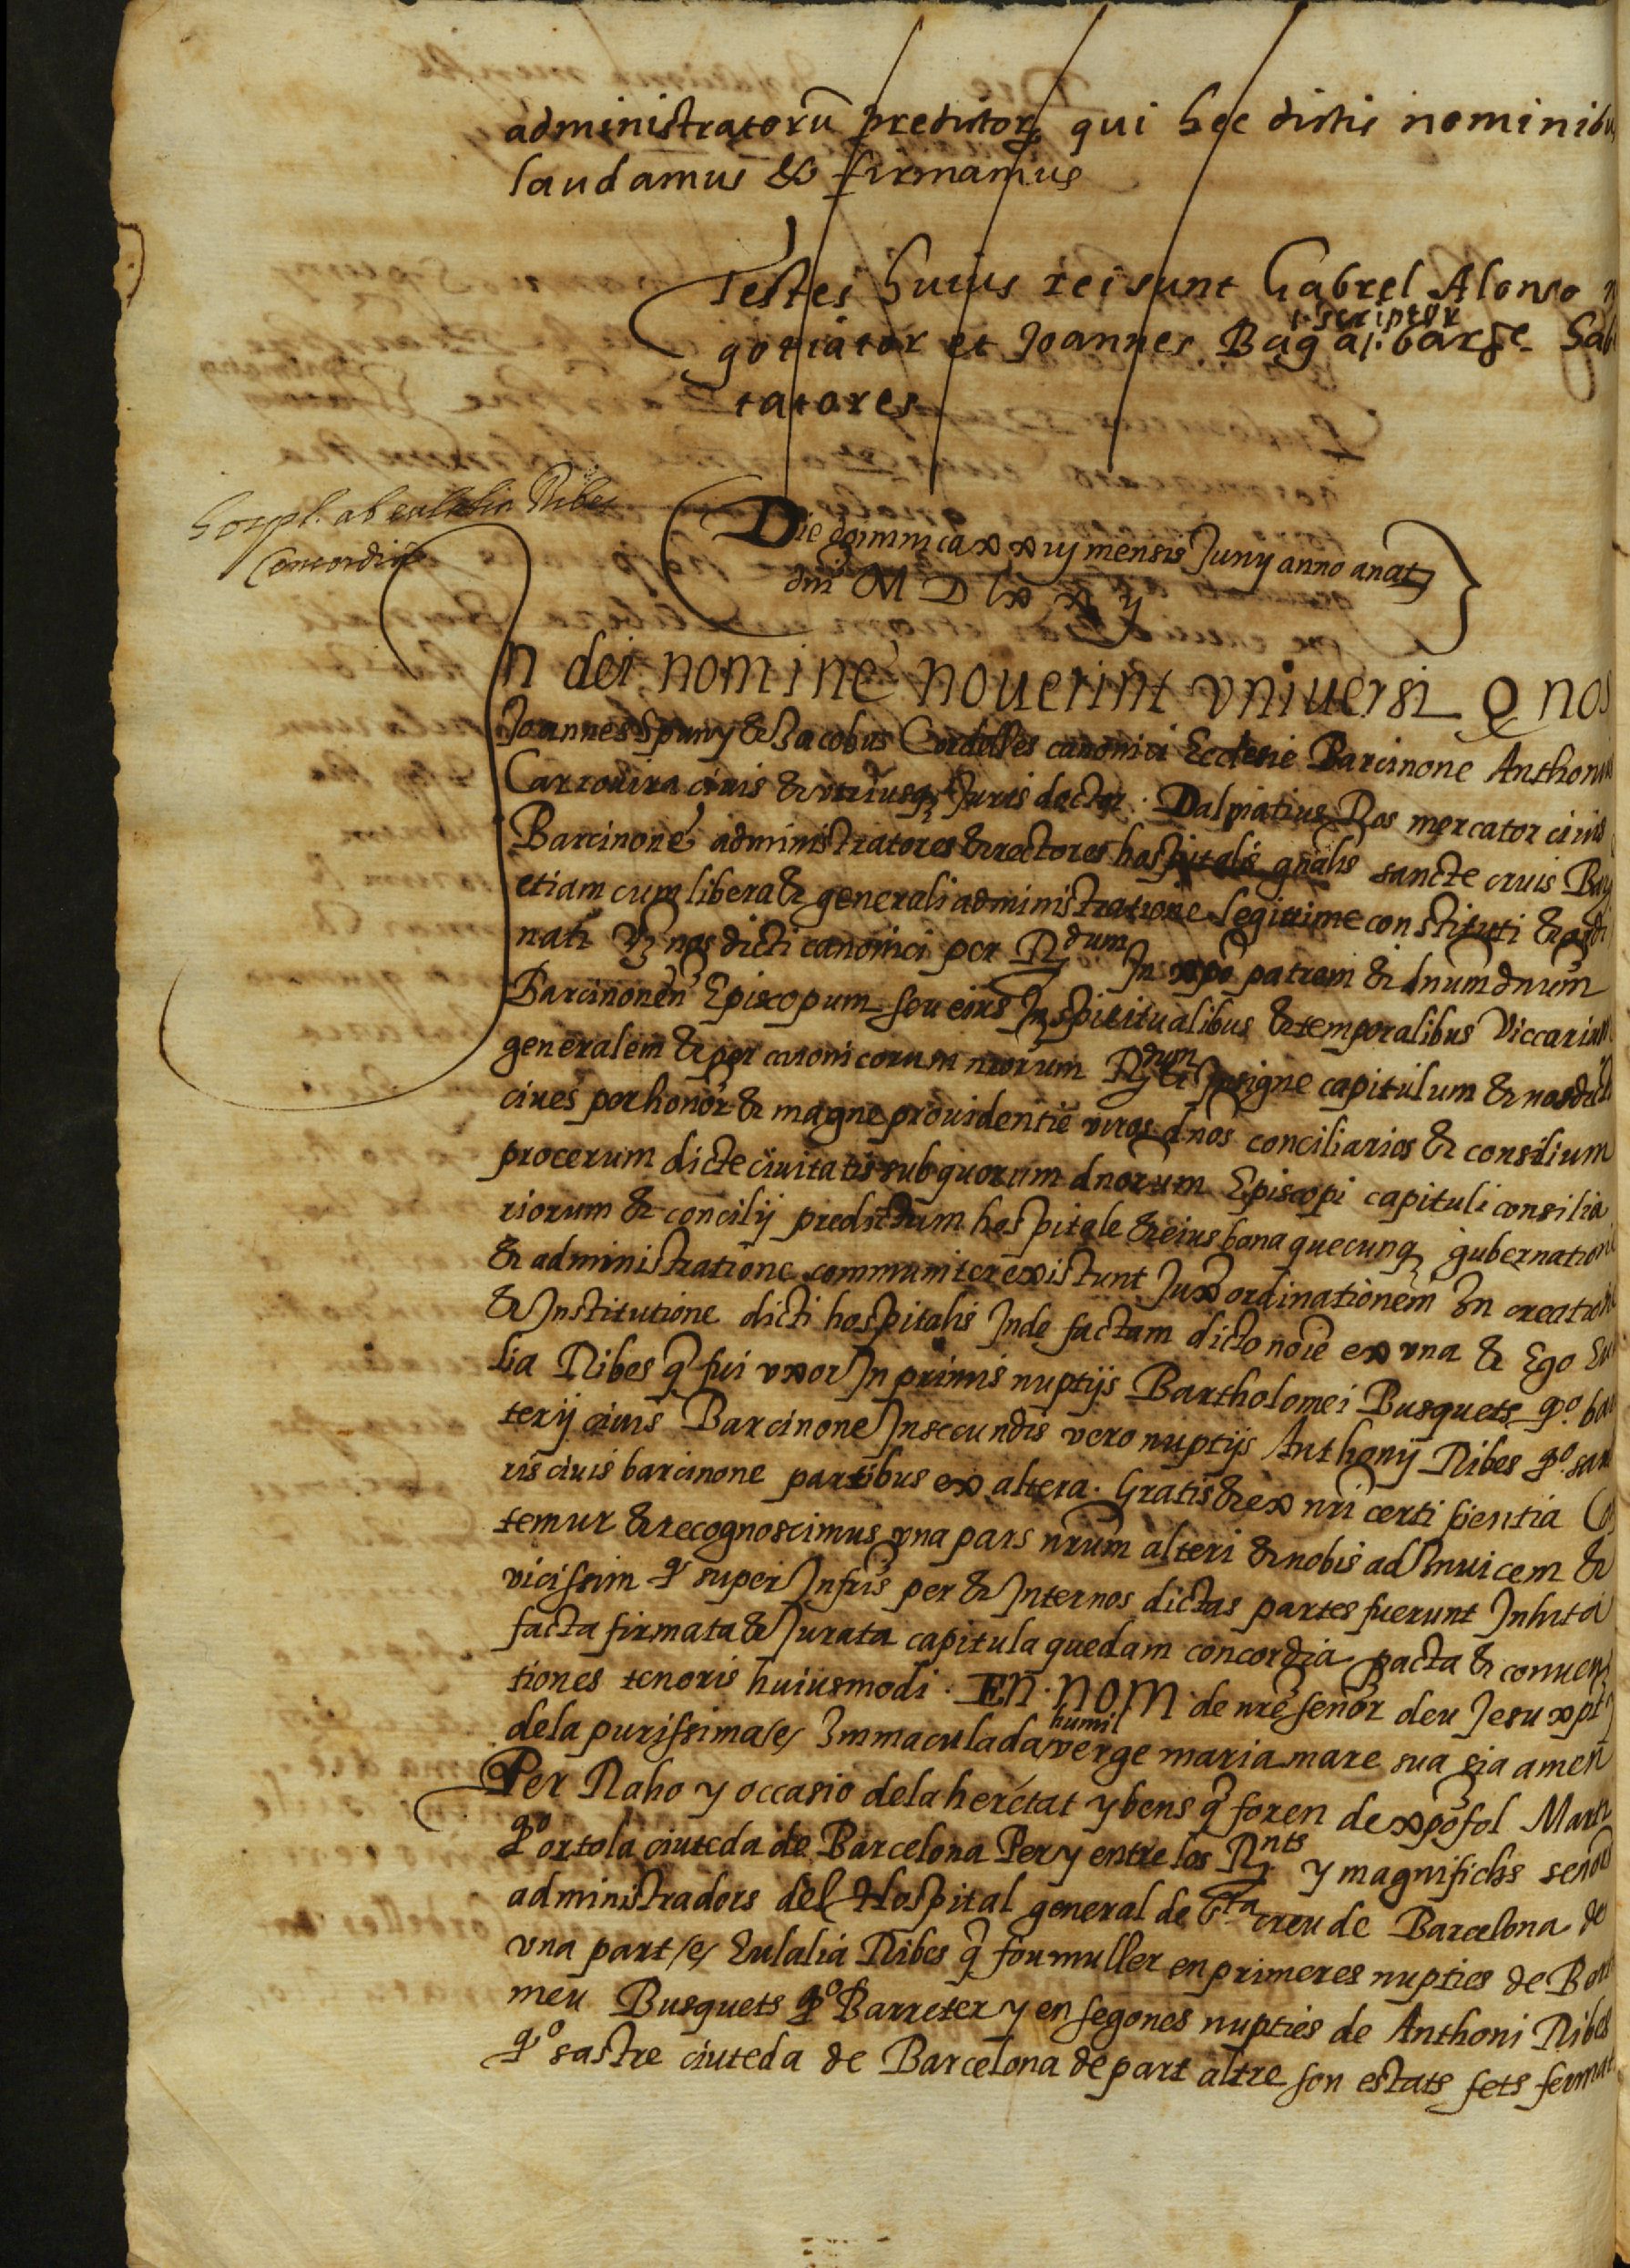 administratorũ predictorꝝ qui hec dictis nominibus
laudamus & firmamus
Testes huius rei sunt Gabrel Alonso n
scriptor
gotiator et Joannes Bagaj. barne. habi
tatores
Concordia
Die dominica xxiij mensis Junij anno anat
dni M D lxxxij
In dei nomine nouerint vniuersi Q nos
Joannes Spuny & Jacobus Cordelles canonici Ecclesie Barcinone Anthonius
Carrouira ciuis & vtriusq Juris doctor. Dalmatius Ros mercator ciuis
Barcinone administratores & rectores hospitalis gñalis sancte crucis Bar
etiam cum libera & generali administratione legittime constituti & ordi
nati Vz nos dicti canonici per R.dum In xpõ patrem & dnum dnum
Barcinoneñ Episcopum seu eius In spiritualibus & temporalibus Viccarium
generalem & per canonicorum nrorum R.dum & Insigne capitulum & nos dicti
ciues per honor & magne prouidentie viros dnos conciliarios & consilium
procerum dicte ciuitatis sub quorum dnorum Episcopi capituli consilia
riorum & concilij predictum hospitale & eius bona quecunq gubernatione
& administratione communiter existunt Juxª ordinationem In creatione
& Institutione dicti hospitalis Inde factam dicto noie ex vna & Ego Eula
lia Ribes q̃ fui vxor In primis nuptijs Bartholomei Busquets qº. bar
terij ciuis Barcinone In secundis vero nuptijs Anthonij Ribes qº. sar
ris ciuis barcinone partibus ex altera. Gratis & ex nri certi scientia Co
temur & recognoscimus vna pars nrum alteri & nobis ad Inuicem &
vicissim q̃ super Infris per & Inter nos dictas partes fuerunt Inhita
facta firmata & Jurata capitula quedam concordia pacta & conuen
tiones tenoris huiusmodi. En nom de nre señor deu Jesu xpt
humil
dela purissima /e/ Immaculada verge maria mare sua sia amen
Per Raho y occasio dela heretat y bens q̃ foren de xpõfol Marti
qº ortola ciuteda de Barcelona Per y entre los R.nts y magnifichs señors
administradors del Hospital general de Sta. creu de Barcelona de
vna part /e/ Eulalia Ribes q̃ fou muller en primeres nupties de Bert
meu Busquets qº Barreter y en segones nupties de Anthoni Ribes
qº sastre ciuteda de Barcelona de part altre son estats fets fermat